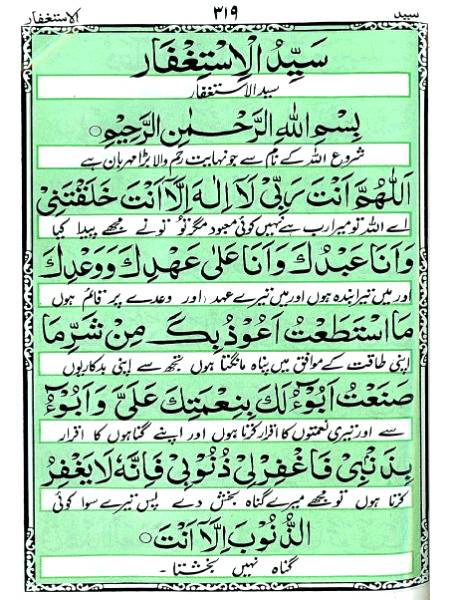 سید ۳۱۹ الاستغفار
سَيِّدُ الْاِسْتِغْفَار
سید الاستغفار
بِسْمِ اللّٰهِ الرَّحْمٰنِ الرَّحِيْمِ ○
شروع اللہ کے نام سے جو نہایت رحم والا بڑا مہربان ہے
اَللّٰهُمَّ اَنْتَ رَبِّيْ لَا اِلٰهَ اِلَّا اَنْتَ خَلَقْتَنِيْ
اے اللہ تو میرا رب ہے نہیں کوئی معبود مگر تو تونے مجھے پیدا کیا
وَاَنَا عَبْدُكَ وَاَنَا عَلٰى عَهْدِكَ وَوَعْدِكَ
اور میں تیرا بندہ ہوں اور میں تیرے عہد اور وعدے پر قائم ہوں
مَا اسْتَطَعْتُ اَعُوْذُ بِكَ مِنْ شَرِّ مَا
اپنی طاقت کے موافق میں پناہ مانگتا ہوں تجھ سے اپنی بدکاریوں
صَنَعْتُ اَبُوْٓءُ لَكَ بِنِعْمَتِكَ عَلَيَّ وَاَبُوْٓءُ
سے اور تیری نعمتوں کا اقرار کرتا ہوں اور اپنے گناہوں کا اقرار
بِذَنْۢبِيْ فَاغْفِرْ لِيْ ذُنُوْبِيْ فَاِنَّهٗ لَا يَغْفِرُ
کرتا ہوں تو مجھے میرے گناہ بخش دے پس تیرے سوا کوئی
الذُّنُوْبَ اِلَّآ اَنْتَ ○
گناہ نہیں بخشتا ۔